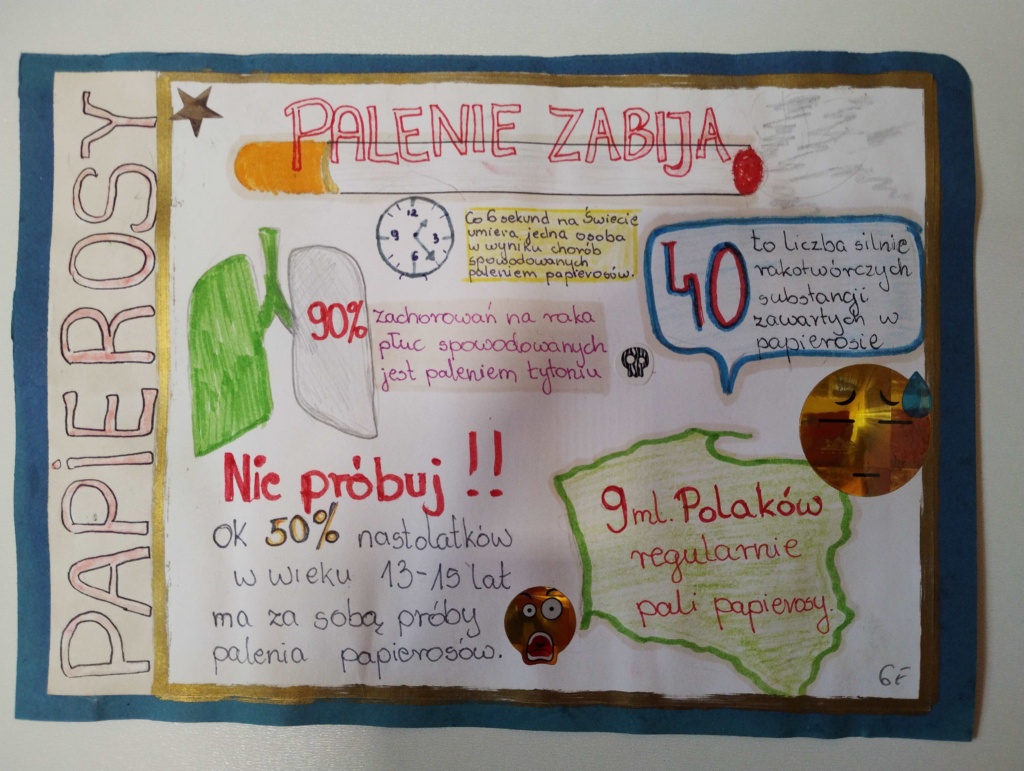 PAPiEROSY
PALENIE ZABIJA
12
9 3
6
Co 6 sekund na Świecie
umiera jedna osoba
w wyniku chorób
spowodowanych
paleniem papierosów.
40
to liczba silnie
rakotwórczych
substancji
zawartych w
papierosie
90%
zachorowań na raka
płuc spowodowanych
jest paleniem tytoniu
Nie próbuj !!
OK 50% nastolatków
w wieku 13-15 lat
ma za sobą próby
palenia papierosów.
9 ml. Polaków
regularnie
pali papierosy.
6E